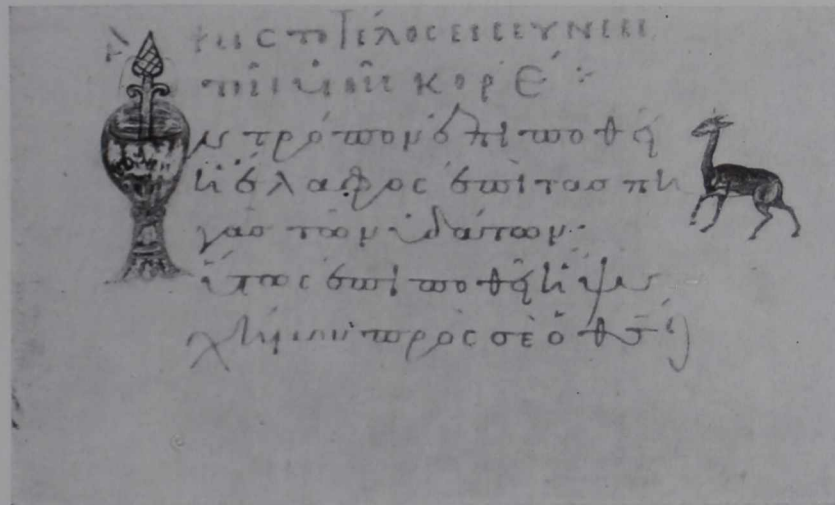 εις το τέλος εις συνεσιν
τοῖς υἱοῖς κορέ ⁘
ν τρόπον ἐπιποθεῖ
ἡ ἔλαφος ἐπὶ τὰς πη
γὰς τῶν ὑδάτων·
οὕτως ἐπιποθεῖ ἡ ψυ
χή μου πρὸς σὲ ὁ θ̅ς̅